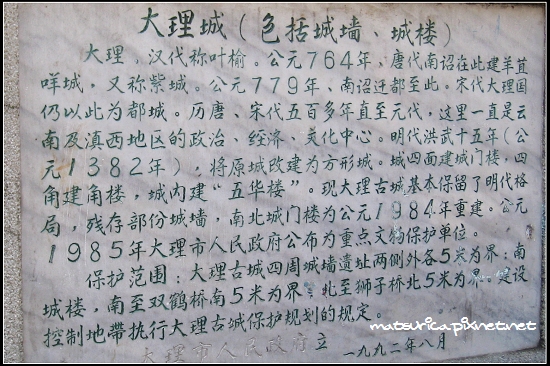 大理城(包括城墙、城楼)
大理,汉代称叶榆。公元764年,唐代南诏在此建羊苴
咩城,又称紫城。公元779年、南诏迁都至此。宋代大理国
仍以此为都城。历唐、宋代五百多年直至元代,这里一直是云
南及滇西地区的政治、经济、文化中心。明代洪武十五年(公
元1382年),将原城改建为方形城。城四面建城门楼,四
角建角楼,城内建“五华楼”。现大理古城基本保留了明代格
局,残存部份城墙,南北城门楼为公元1984年重建。公元
1985年大理市人民政府公布为重点文物保护单位。
保护范围:大理古城四周城墙遗址两侧外各5米为界;南
城楼,南至双鹤桥南5米为界,北至狮子桥北5米。建设
控制地帶执行大理古城保护规划的规定。
大理市人民政府立
一九九二年八月
matsurica.pixnet.net